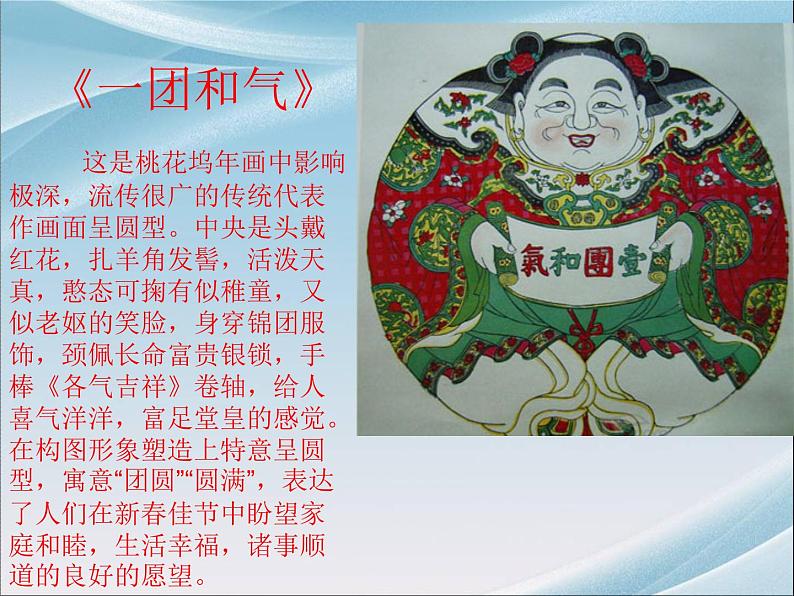 《一团和气》
这是桃花坞年画中影响
极深，流传很广的传统代表
作画面呈圆型。中央是头戴
红花，扎羊角发髻，活泼天
真，憨态可掬有似稚童，又
似老妪的笑脸，身穿锦团服
饰，颈佩长命富贵银锁，手
棒《各气吉祥》卷轴，给人
喜气洋洋，富足堂皇的感觉。
在构图形象塑造上特意呈圆
型，寓意“团圆”“圆满”，表达
了人们在新春佳节中盼望家
庭和睦，生活幸福，诸事顺
道的良好的愿望。
氣和團壹